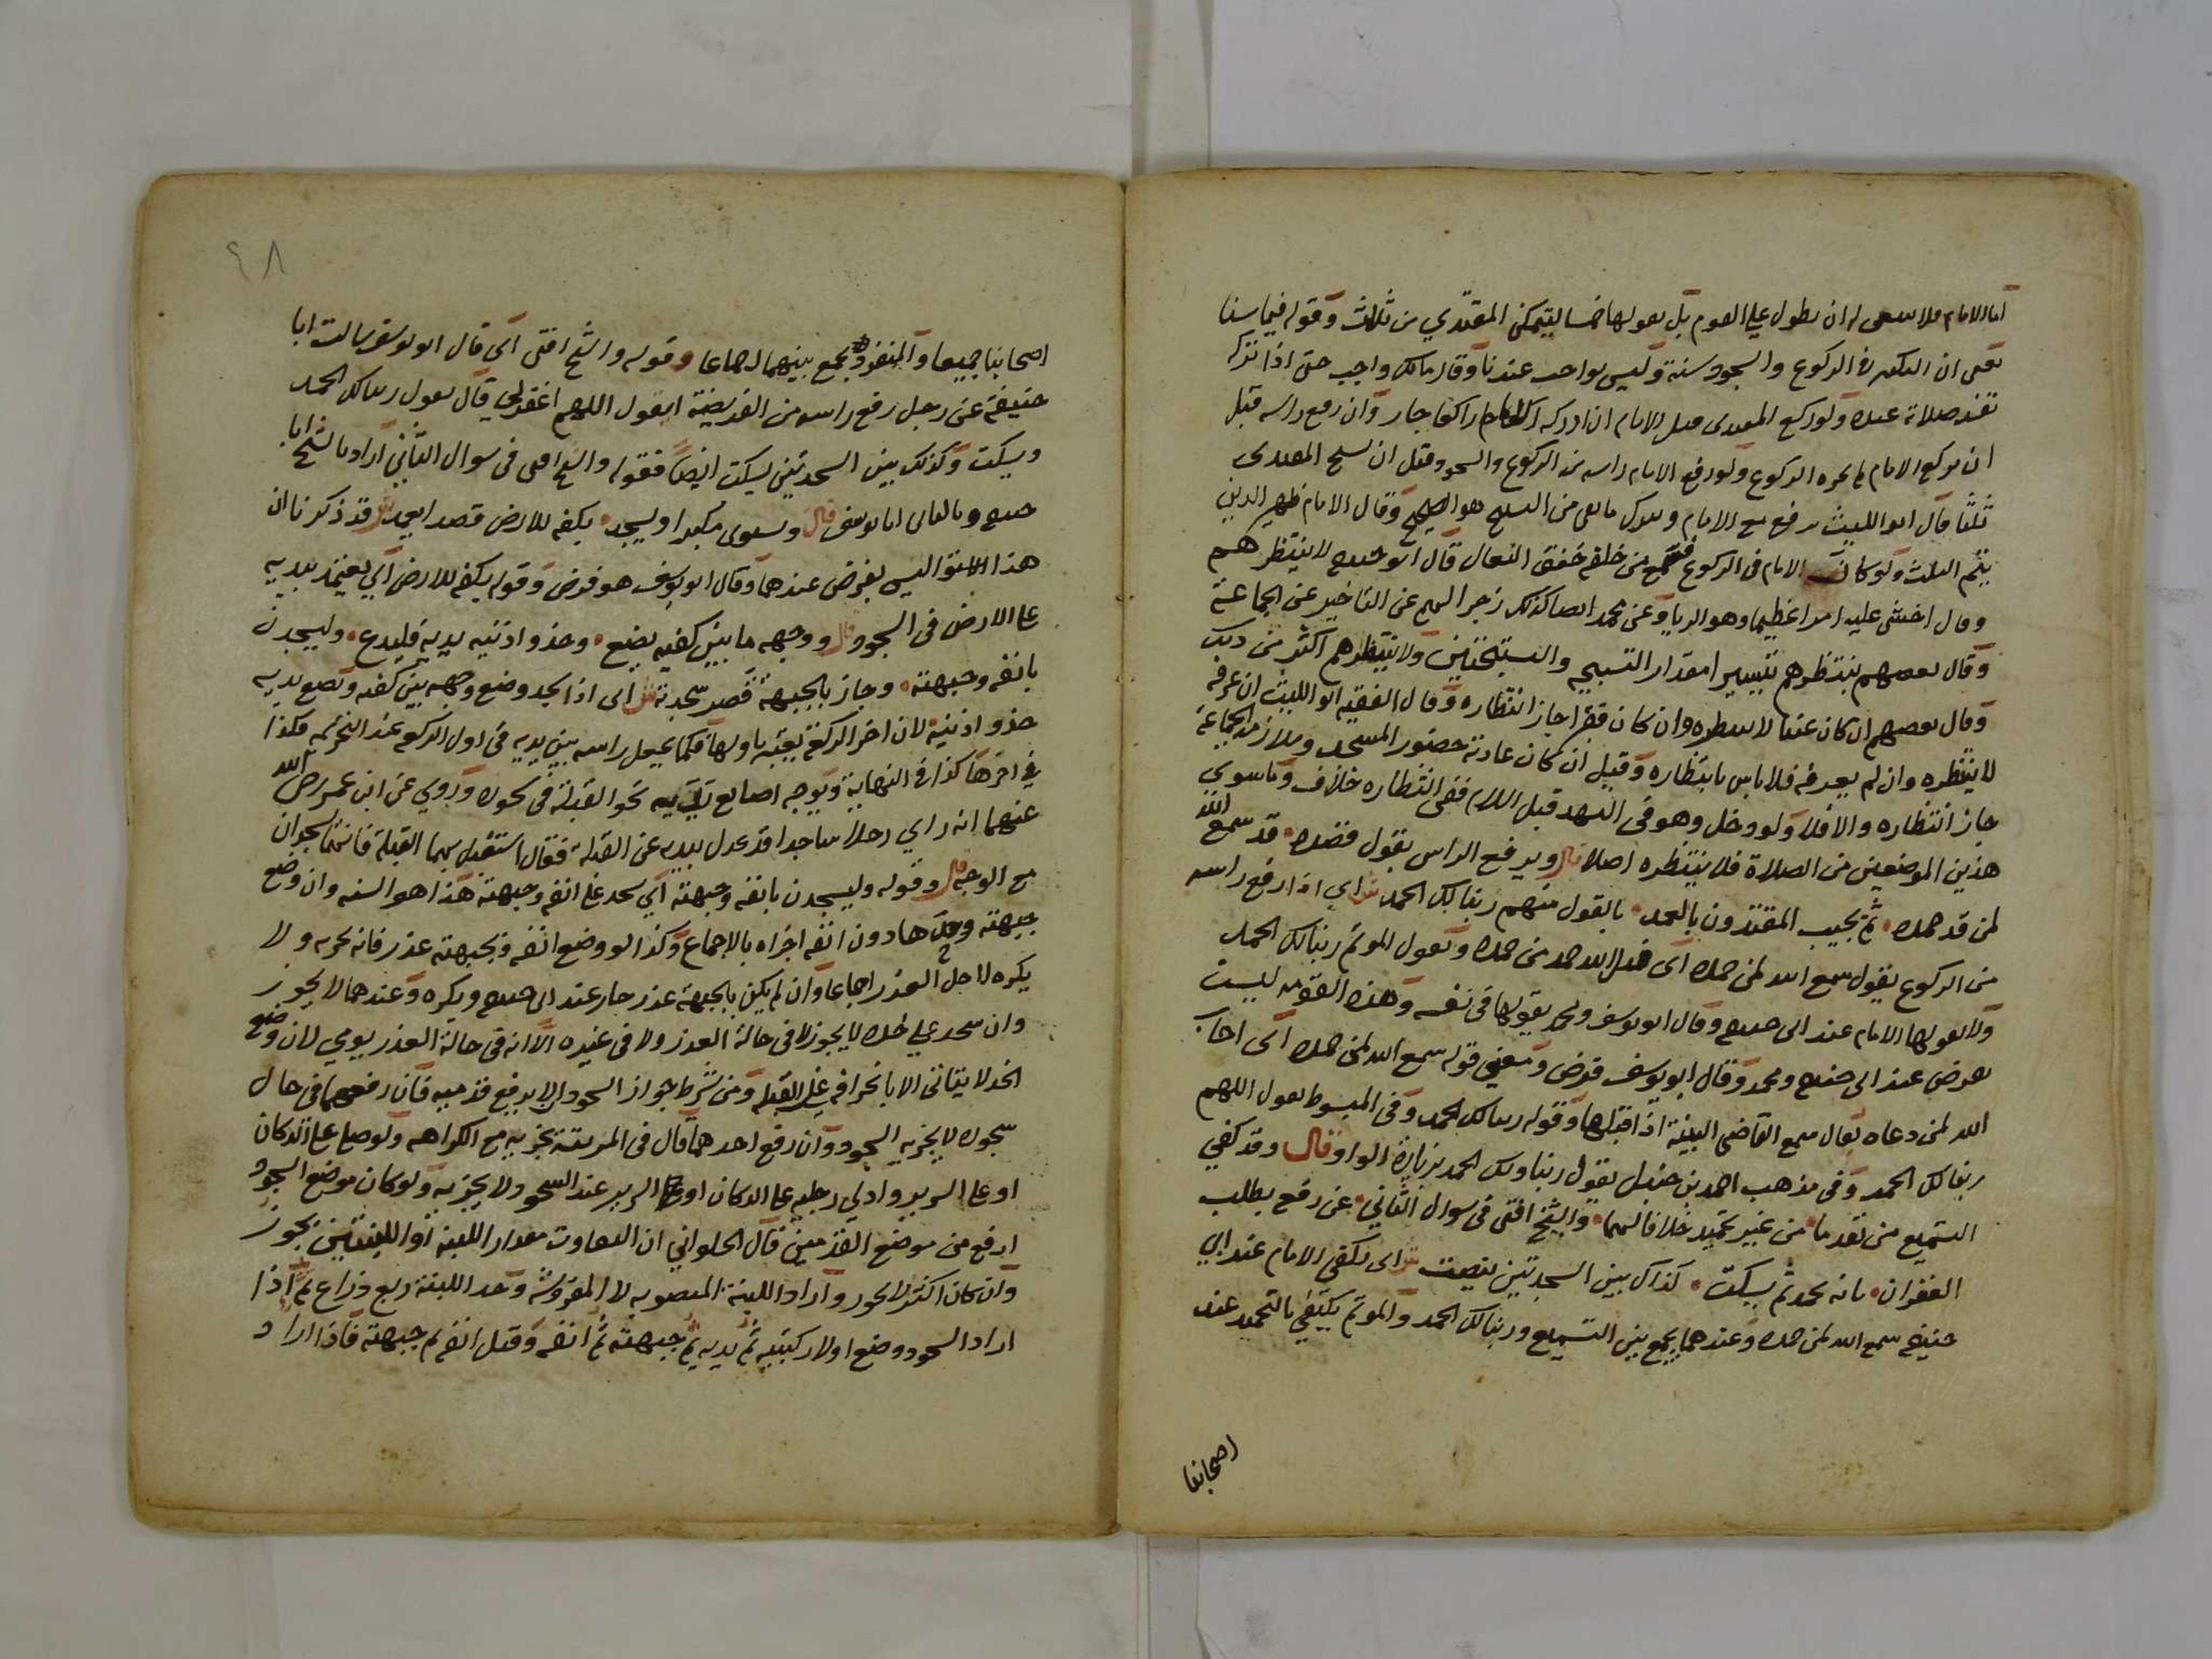 اما الامام فلا ينبغي له ان يطول علي القوم بل يقولها خمسا ليتمكن المقتدي من ثلاث وقوله فيما سنا
يعني ان التكبير في الركوع والسجود سنة وليس بواجب عندنا وقال مالك واجب حتى اذا تركه
تفسد صلاته عنده ولو ركع المقتدى قبل الامام ان ادركه الامام راكعا جاز وان رفع راسه قبل
ان يركع الامام لم يجزه الركوع ولو رفع الامام راسه من الركوع والسجود قبل ان يسبح المقتدى
ثلثا قال ابو الليث يرفع مع الامام ويترك ما بقى من التسبيح هو الصحيح وقال الامام ظهير الدين
يتم الثلث ولو كان الامام فى الركوع فسمع من خلفه خفق النعال قال ابو حنيفة لا ينتظرهم
وقال اخشى عليه امرا عظيما وهو الريا وعن محمد ايضا كذلك زجرا لهم عن التاخير عن الجماعة
وقال بعضهم ينتظرهم يسيرا مقدار التسبيحة والتسبيحتين ولا ينتظرهم اكثر من ذلك
وقال بعضهم ان كان غنيا لا ينتظره وان كان فقيرا جاز انتظاره وقال الفقيه ابو الليث ان عرفه
لا ينتظره وان لم يعرفه فلا باس بانتظاره وقيل ان كان عادته حضور المسجد وملازمة الجماعة
جاز انتظاره والا فلا ولو دخل وهو فى التشهد قبل السلام ففى انتظاره خلاف وما سوى
هذين الموضعين من الصلاة فلا ينتظره اصلا قال ويرفع الراس بقول قصده قد سمع الله
لمن قد حمده ثم يجيب المقتدون بالحمد بالقول منهم ربنا لك الحمد ش اى اذا رفع راسه
من الركوع يقول سمع الله لمن حمده اى قبل الله حمد من حمده ويقول الموتم ربنا لك الحمد
ولا يقولها الامام عند ابى حنيفة وقال ابو يوسف ومحمد يقولها فى نفسه وهذه القومة ليست
بفرض عند ابى حنيفة ومحمد وقال ابو يوسف فرض ومعنى قوله سمع الله لمن حمده اى اجاب
الله لمن دعاه يقال سمع القاضى البينة اذا قبلها وقوله ربنا لك الحمد وفى المبسوط يقول اللهم
ربنا لك الحمد وفى مذهب احمد بن حنبل يقول ربنا ولك الحمد بزيادة الواو قال وقد كفي
التسميع من تقدما من غير تحميد خلافا لهما والشيخ افتى فى سوال الثاني عن رفع يطلب
الغفران بانه يحمد ثم يسكت كذاك بين السجدتين ينصت ش اى يكفى الامام عند ابى
حنيفة سمع الله لمن حمده وعندهما يجمع بين التسميع وربنا لك الحمد والموتم يكتفي بالتحميد عند
اصحابنا
٤٨
اصحابنا جميعا والمنفرد يجمع بينهما اجماعا وقوله والشيخ افتى اى قال ابو يوسف سالت ابا
حنيفة عن رجل رفع راسه من الفريضة ايقول اللهم اغفر لي قال يقول ربنا لك الحمد
ويسكت وكذلك بين السجدتين يسكت ايضا فقوله والشيخ افتى فى سوال الثاني اراد بالشيخ ابا
حنيفة وبالثاني ابا يوسف قال ويستوى مكبرا ويسجد بكفه للارض قصدا يعمد ش قد ذكرنا ان
هذا الاستوا ليس بفرض عندهما وقال ابو يوسف هو فرض وقوله بكفه للارض اى يعتمد بيديه
على الارض فى السجود قال ووجهه ما بين كفيه يضع وحذو اذنيه يديه فليدع وليسجدن
بانفه وجبهته وجاز بالجبهة قصر سجدته ش اى اذا سجد وضع وجهه بين كفيه ويضع يديه
حذو اذنيه لان اخر الركعة يعتبر باولها فكما يجعل راسه بين يديه فى اول الركوع عند التحريمة فكذا
فى اخرها كذا فى النهاية ويوجه اصابع يديه نحو القبلة فى سجوده وروي عن ابن عمر رضى الله
عنهما انه راي رجلا ساجدا قد عدل بيديه عن القبلة فقال استقبل بهما القبلة فانهما يسجدان
مع الوجه قال وقوله وليسجدن بانفه وجبهته اى يسجد على انفه وجبهته هذا هو السنه وان وضع
جبهته وحدها دون انفه اجزاه بالاجماع وكذا لو وضع انفه وبجبهته عذر فانه يجزيه ولا
يكره لاجل العذر اجماعا وان لم يكن بالجبهة عذر جاز عند ابى حنيفة ويكره وعندهما لا يجوز
وان سجد علي خده لا يجوز لا فى حالة العذر ولا فى غيره الا انه فى حالة العذر يومي لان وضع
الخد لا يتاتى الا بانحراف عن القبله ومن شرط جواز السجود ان لا يرفع قدميه فان رفعهما فى حال
سجوده لا يجزيه السجود وان رفع احدهما قال فى المرتبة يجزيه مع الكراهه ولو صلى على الدكان
او على السرير وادلى رجليه على الدكان او على السرير عند السجود لا يجزيه ولو كان موضع السجود
ارفع من موضع القدمين قال الحلواني ان التفاوت مقدار اللبنة او اللبنتين يجوز
وان كان اكثر لا يجوز واراد اللبنة المنصوبه لا المفروشة وحد اللبنة ربع ذراع ثم اذا
اراد السجود وضع اولا ركبتيه ثم يديه ثم جبهته ثم انفه وقيل انفه ثم جبهته فاذا اراد